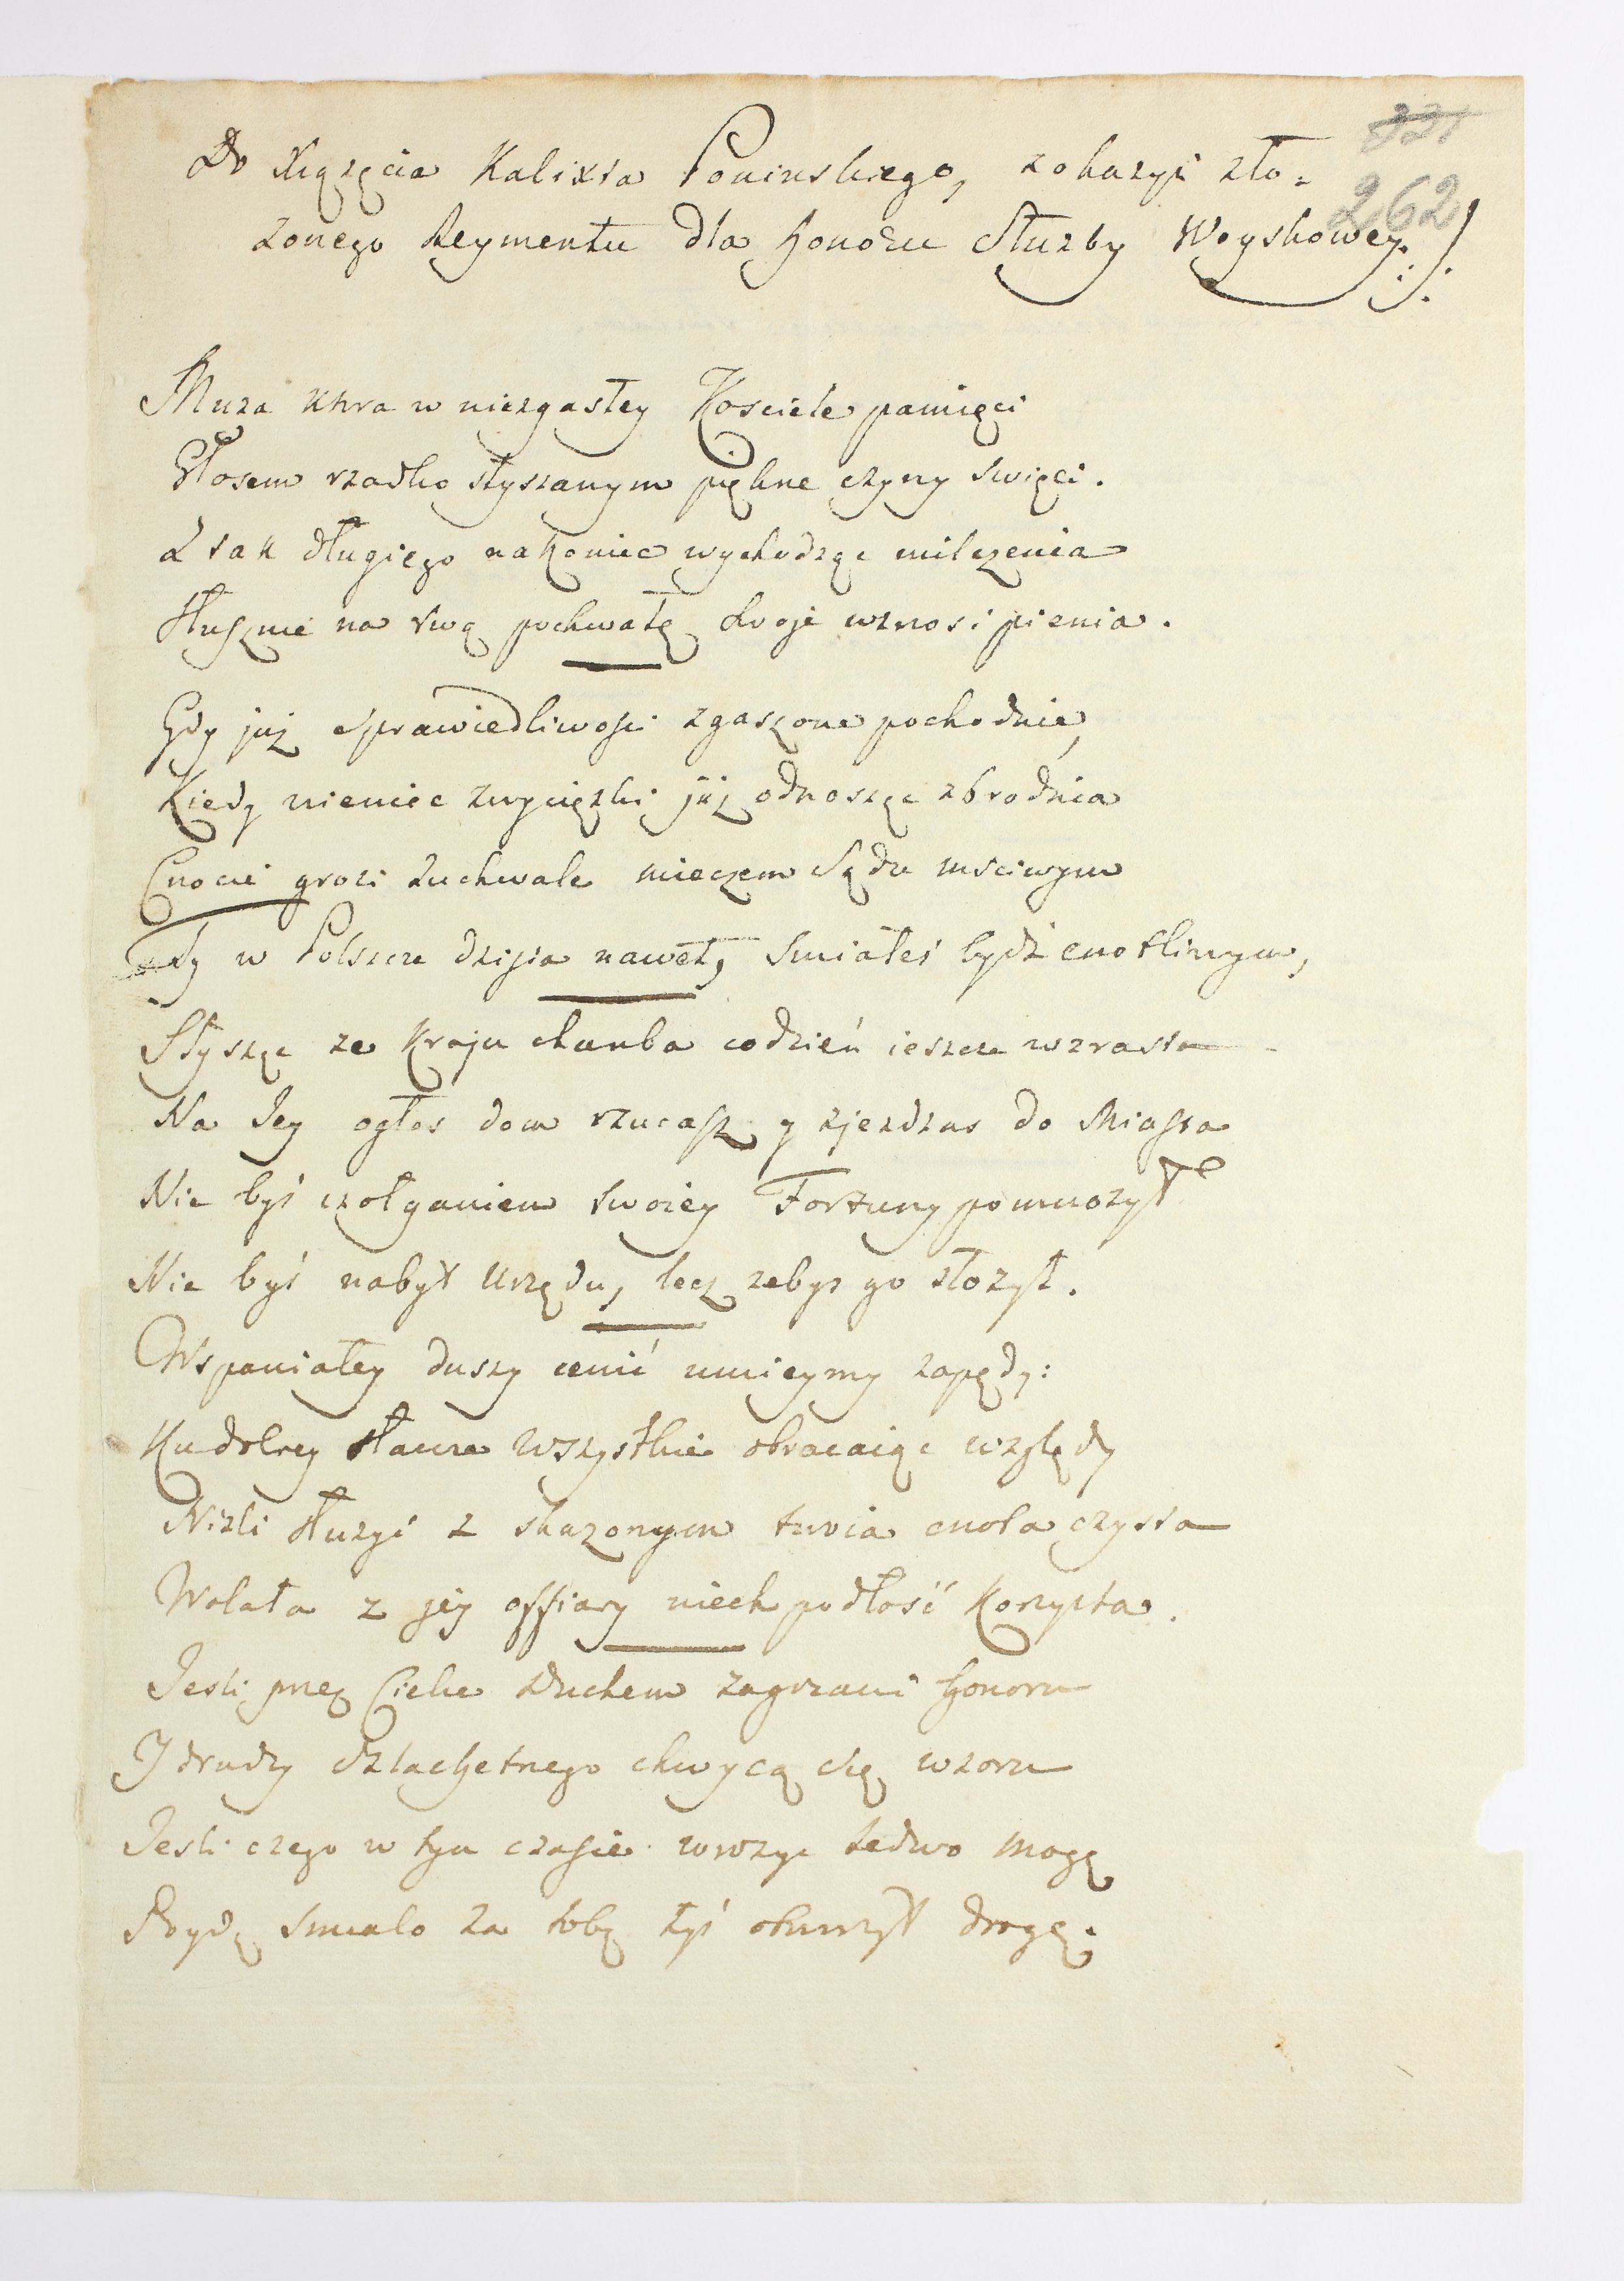 321
262
Do Xiązęcia Kalixta Poninskiego, z okazyi zło=
zonego Reymentu dla honoru Służby Woyskowey.
Muza ktora w niezgasłey Kosciele pamięci
Głosem rzadko słyszanym piękne czyny swięci.
Z tak długiego nakoniec wychodząc milczenia
Słusznie na twą pochwałę swoje wznosi pienia.
Gdy już sprawiedliwosci zgaszone pochodnie,
Kiedy niemiec zwycięzki już odnosząc zbrodnia
Cnocie grozi zuchwale mieczem Sądu mściwym
Ty w Polszcze dzisia nawet, smiałeś bydź cnotliwym,
Słysząc ze Kraju chanba codzień ieszcze wzrasta
Na Jey ogłos dom rzucasz y zjezdzas do Miasta
Nie byś czołganiem swoiey Fortuny pomnozył
Nie byś nabył Urzędu, lecz zebys go złozył.
Wspaniałey duszy cenić umieymy zapędy:
Ku dobrey sławie wszystkie obracaiąc względy
Nizli służyć z skazonym twoia cnota czysta
Wolała z jey offiary niech podłość korzysta.
Jesli przez Ciebie Duchem zagrzani honoru
I drudzy szlachetnego chwycą się wzoru
Jesli czego w tym czasie wrożyc ledwo mogę
Poydą smialo za tobą tyś otworzył drogę.